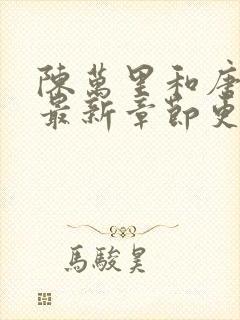 陳萬里和唐
最新章節更
馬駿昊